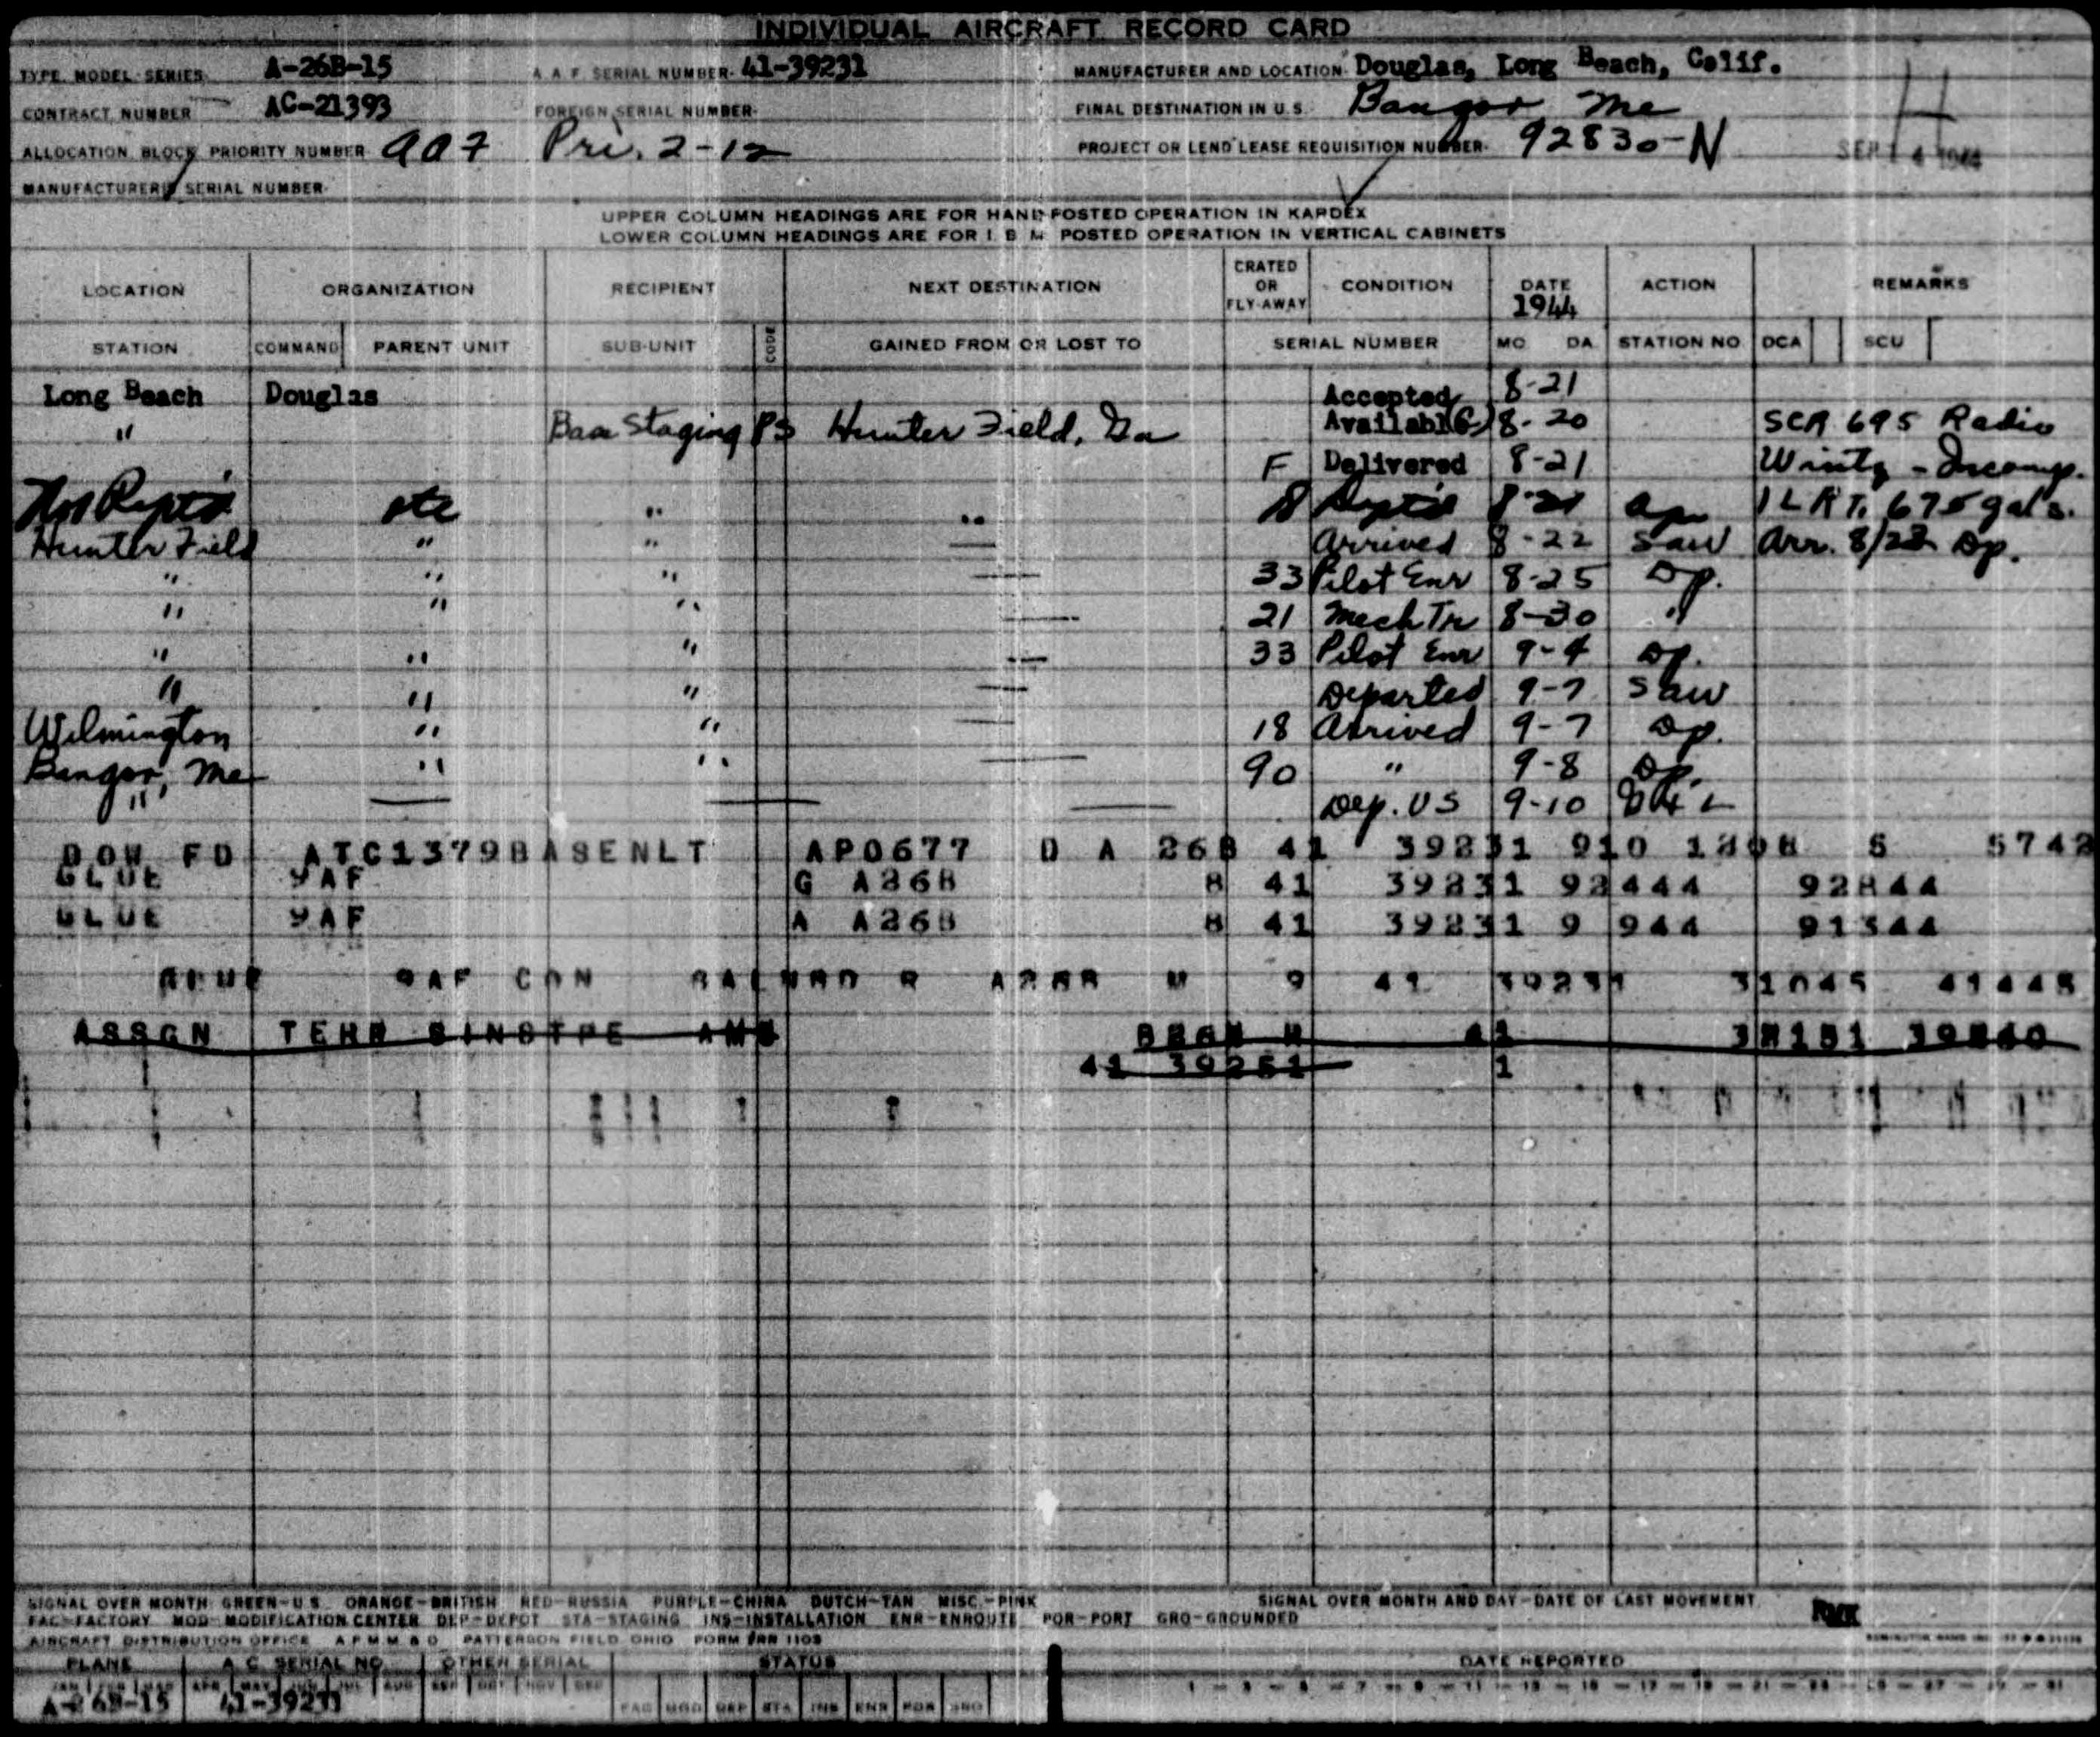 INDIVIDUAL AIRCRAFT RECORD CARD
TYPE MODEL SERIES A-26B-15 A.A.F. SERIAL NUMBER 41-39231 MANUFACTURER AND LOCATION Douglas, Long Beach, Calif.
CONTRACT NUMBER AC-21393 FOREIGN SERIAL NUMBER FINAL DESTINATION IN U.S. Bangor Me H
ALLOCATION BLOCK PRIORITY NUMBER 907 Pri. 2-12 PROJECT OR LEND LEASE REQUISITION NUMBER 92830-N SEP 14 1944
MANUFACTURER'S SERIAL NUMBER
UPPER COLUMN HEADINGS ARE FOR HAND POSTED OPERATION IN KARDEX
LOWER COLUMN HEADINGS ARE FOR I B M POSTED OPERATION IN VERTICAL CABINETS
LOCATION ORGANIZATION RECIPIENT NEXT DESTINATION CRATED OR FLY-AWAY CONDITION DATE 1944 ACTION REMARKS
STATION COMMAND PARENT UNIT SUB-UNIT CODE GAINED FROM OR LOST TO SERIAL NUMBER MO DA STATION NO DCA SCU
Long Beach Douglas Accepted 8-21
" Base Staging PS Hunter Field, Ga Available 8-20 SCR 695 Radio
F Delivered 8-21 Wintz - Incomp.
" " 1 L R T. 675 gals.
Hunter Field " " — Arrived 8-22 Saw Arr. 8/23 Dp.
" " " — 33 Pilot Enr 8-25 Dp.
" " " — 21 Mech Tr 8-30 "
" " " — 33 Pilot Enr 9-4 Dp.
" " " — Departed 9-7 Saw
Wilmington " " — 18 Arrived 9-7 Dp.
Bangor, Me " " — 90 " 9-8 Dp.
" — — — Dep. US 9-10
DOW FD ATC1379BASENLT APO677 D A 26B 41 39231 910 S 5742
GLUE 9AF G A26B 41 39231 92444 92844
GLUE 9AF A A26B 41 39231 9 944 91344
9AF CON 41 39231 31045 41445
ASSGN
41 1
SIGNAL OVER MONTH GREEN-U.S. ORANGE-BRITISH RED-RUSSIA PURPLE-CHINA DUTCH-TAN MISC.-PINK SIGNAL OVER MONTH AND DAY-DATE OF LAST MOVEMENT
FAC-FACTORY MOD-MODIFICATION CENTER DEP-DEPOT STA-STAGING INS-INSTALLATION ENR-ENROUTE POR-PORT GRO-GROUNDED
AIRCRAFT DISTRIBUTION OFFICE A.P.M.M.& D PATTERSON FIELD OHIO FORM 1103
PLANE A C SERIAL NO OTHER SERIAL STATUS DATE REPORTED
JAN FEB MAR APR MAY JUN JUL AUG SEP OCT NOV DEC
A-26B-15 41-39231 FAC MOD DEP STA INS ENR POR GRO